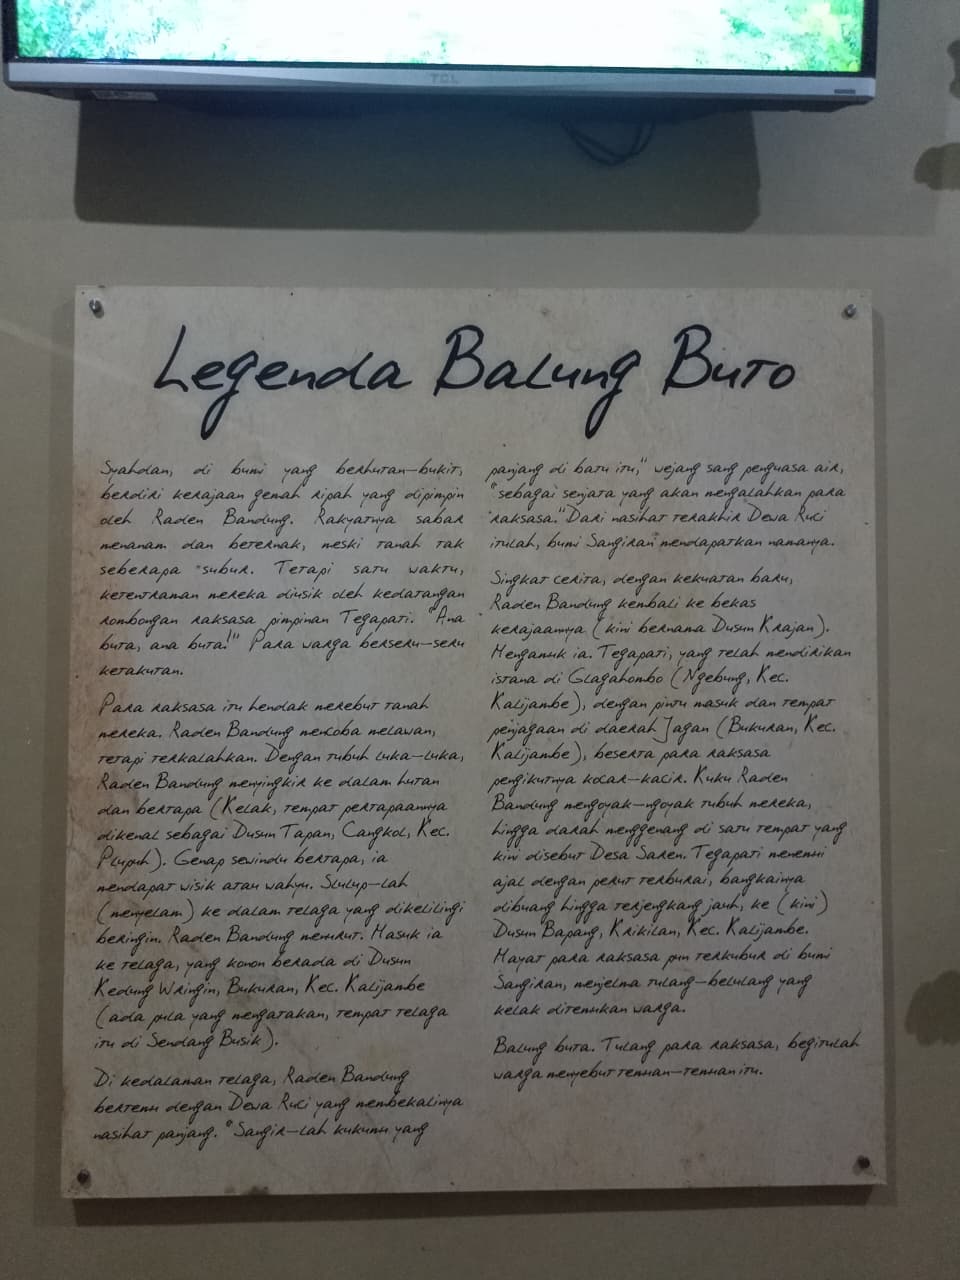 TCL
Legenda Balung Buto
Syahdan, di bumi yang berhutan-bukit,
berdiri kerajaan gemah ripah yang dipimpin
oleh Raden Bandung. Rakyatnya sabar
menanam dan beternak, meski tanah tak
seberapa subur. Tetapi satu waktu,
ketentraman mereka diusik oleh kedatangan
rombongan raksasa pimpinan Tegapati. "Ana
buta, ana buta!" Para warga berseru-seru
ketakutan.
Para raksasa itu hendak merebut tanah
mereka. Raden Bandung mencoba melawan,
tetapi terkalahkan. Dengan tubuh luka-luka,
Raden Bandung menyingkir ke dalam hutan
dan bertapa (Kelak, tempat pertapaannya
dikenal sebagai Dusun Tapan, Cangkol, Kec.
Plupuh). Genap sewindu bertapa, ia
mendapat wisik atau wahyu. Slulup-lah
(menyelam) ke dalam telaga yang dikelilingi
beringin. Raden Bandung menurut. Masuk ia
ke telaga, yang konon berada di Dusun
Kedung Wringin, Bukuran, Kec. Kalijambe
(ada pula yang mengatakan, tempat telaga
itu di Sendang Busik).
Di kedalaman telaga, Raden Bandung
bertemu dengan Dewa Ruci yang membekalinya
nasihat panjang. "Sangir-lah kukumu yang
panjang di batu itu," wejang sang penguasa air,
"sebagai senjata yang akan mengalahkan para
raksasa." Dari nasihat terakhir Dewa Ruci
itulah, bumi Sangiran mendapatkan namanya.
Singkat cerita, dengan kekuatan baru,
Raden Bandung kembali ke bekas
kerajaannya (kini bernama Dusun Krajan).
Mengamuk ia. Tegapati, yang telah mendirikan
istana di Glagahombo (Ngebung, Kec.
Kalijambe), dengan pintu masuk dan tempat
penjagaan di daerah Jagan (Bukuran, Kec.
Kalijambe), beserta para raksasa
pengikutnya kocar-kacir. Kuku Raden
Bandung mengoyak-ngoyak tubuh mereka,
hingga darah menggenang di satu tempat yang
kini disebut Desa Saren. Tegapati menemui
ajal dengan perut terburai, bangkainya
dibuang hingga terjengkang jauh, ke (kini)
Dusun Bapang, Krikilan, Kec. Kalijambe.
Mayat para raksasa pun terkubur di bumi
Sangiran, menjelma tulang-belulang yang
kelak ditemukan warga.
Balung buta. Tulang para raksasa, begitulah
warga menyebut temuan-temuan itu.